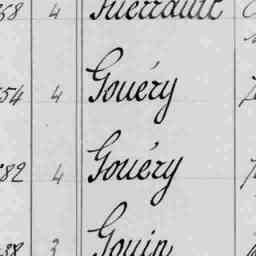 58 4
54 4 Gouéry
82 4 Gouéry
38 3 Gouin